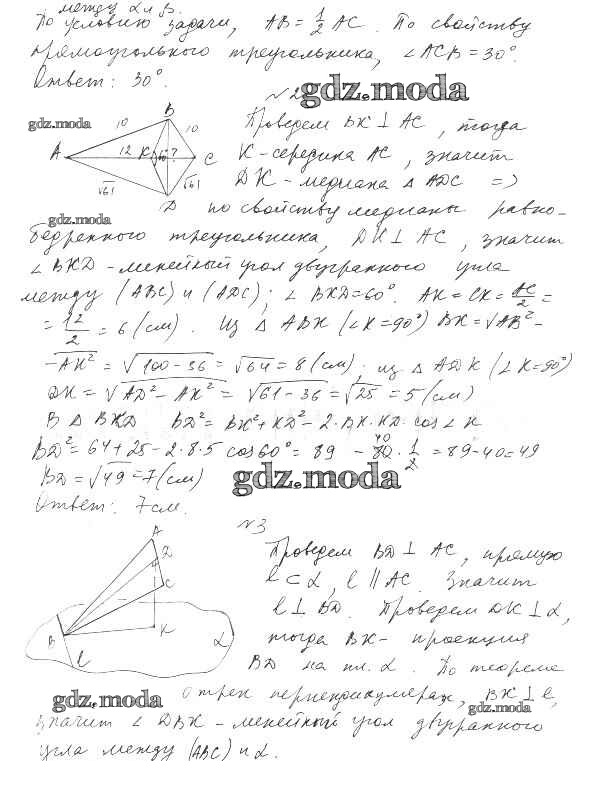 между α и β.
По условию задачи, AB = 1/2 AC. По свойству
прямоугольного треугольника, ∠ACB = 30°.
Ответ: 30°.
№2
gdz.moda
gdz.moda
B
10
10
A
12
K
60°
?
C
√61
√61
D
Проведем BK ⊥ AC, тогда
K - середина AC, значит
DK - медиана △ ADC ⇒
gdz.moda
по свойству медианы равно-
бедренного треугольника, DK ⊥ AC, значит
∠ BKD - линейный угол двугранного угла
между (ABC) и (ADC); ∠ BKD = 60°. AK = CK = AC/2 =
= 12/2 = 6 (см). Из △ ABK (∠K = 90°) BK = √AB² -
- AK² = √100 - 36 = √64 = 8 (см); из △ ADK (∠K = 90°)
DK = √AD² - AK² = √61 - 36 = √25 = 5 (см)
В △ BKD BD² = BK² + KD² - 2·BK·KD·cos∠K
BD² = 64 + 25 - 2·8·5 cos60° = 89 - 80·1/2 = 89 - 40 = 49
40
BD = √49 = 7 (см)
gdz.moda
Ответ: 7 см.
№3
A
D
C
K
B
α
l
Проведем BD ⊥ AC, прямую
l ⊂ α, l ∥ AC. Значит
l ⊥ BD. Проведем DK ⊥ α,
тогда BK - проекция
BD на пл. α. По теореме
gdz.moda
о трех перпендикулярах, BK ⊥ l,
gdz.moda
значит ∠ DBK - линейный угол двугранного
угла между (ABC) и α.